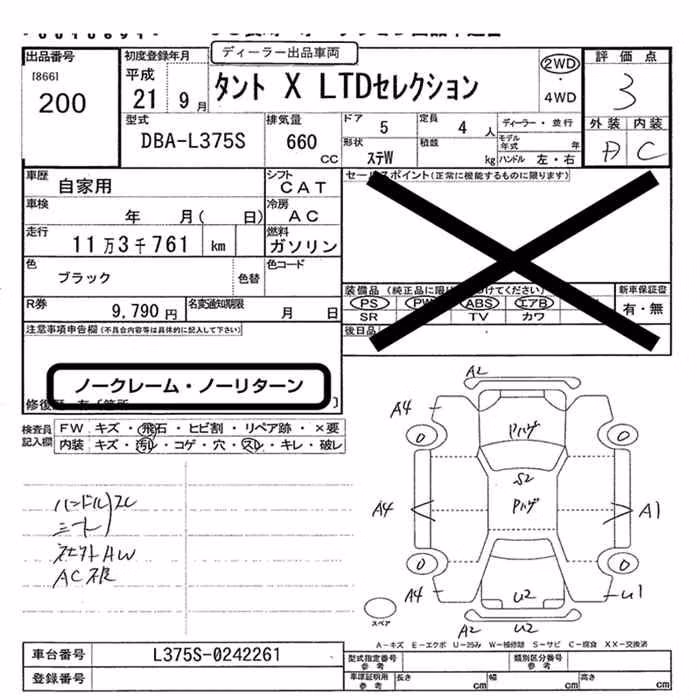 出品番号
[866]
200
初度登録年月
平成
21 9月
ディーラー出品車両
タント X LTDセレクション
2WD
・
4WD
評価点
3
外装 内装
A C
型式
DBA-L375S
排気量
660
CC
ドア 5
定員 4 人
ディーラー・並行
形状 ステW
積載 kg
モデル年式 年
ハンドル 左・右
車歴 自家用
シフト CAT
セールスポイント(正常に機能するものに限ります)
車検 年 月( 日)
冷房 AC
走行 11万3千761 km
燃料 ガソリン
色 ブラック 色替
色コード
R券 9,790円
名変通知期限 月 日
装備品
PS PW ABS エアB
SR TV カワ
新車保証書
有・無
後日品
注意事項申告欄(不具合内容等は具体的に記入して下さい)
ノークレーム・ノーリターン
検査員記入欄
FW キズ・飛石・ヒビ割・リペア跡・×要
内装 キズ・汚レ・コゲ・穴・スレ・キレ・破レ
ハンドル スレ
シート
AC
A2
A4
Pハゲ
S2
Pハゲ
A4
A1
A4
U2
U1
A2 U2
スペア
A-キズ E-エクボ U-凹み W-補修跡 S-サビ C-腐食 XX-交換済
車台番号 L375S-0242261
登録番号
型式指定番号参考
類別区分番号参考
車庫証明用参考
長さ cm
幅 cm
高さ cm